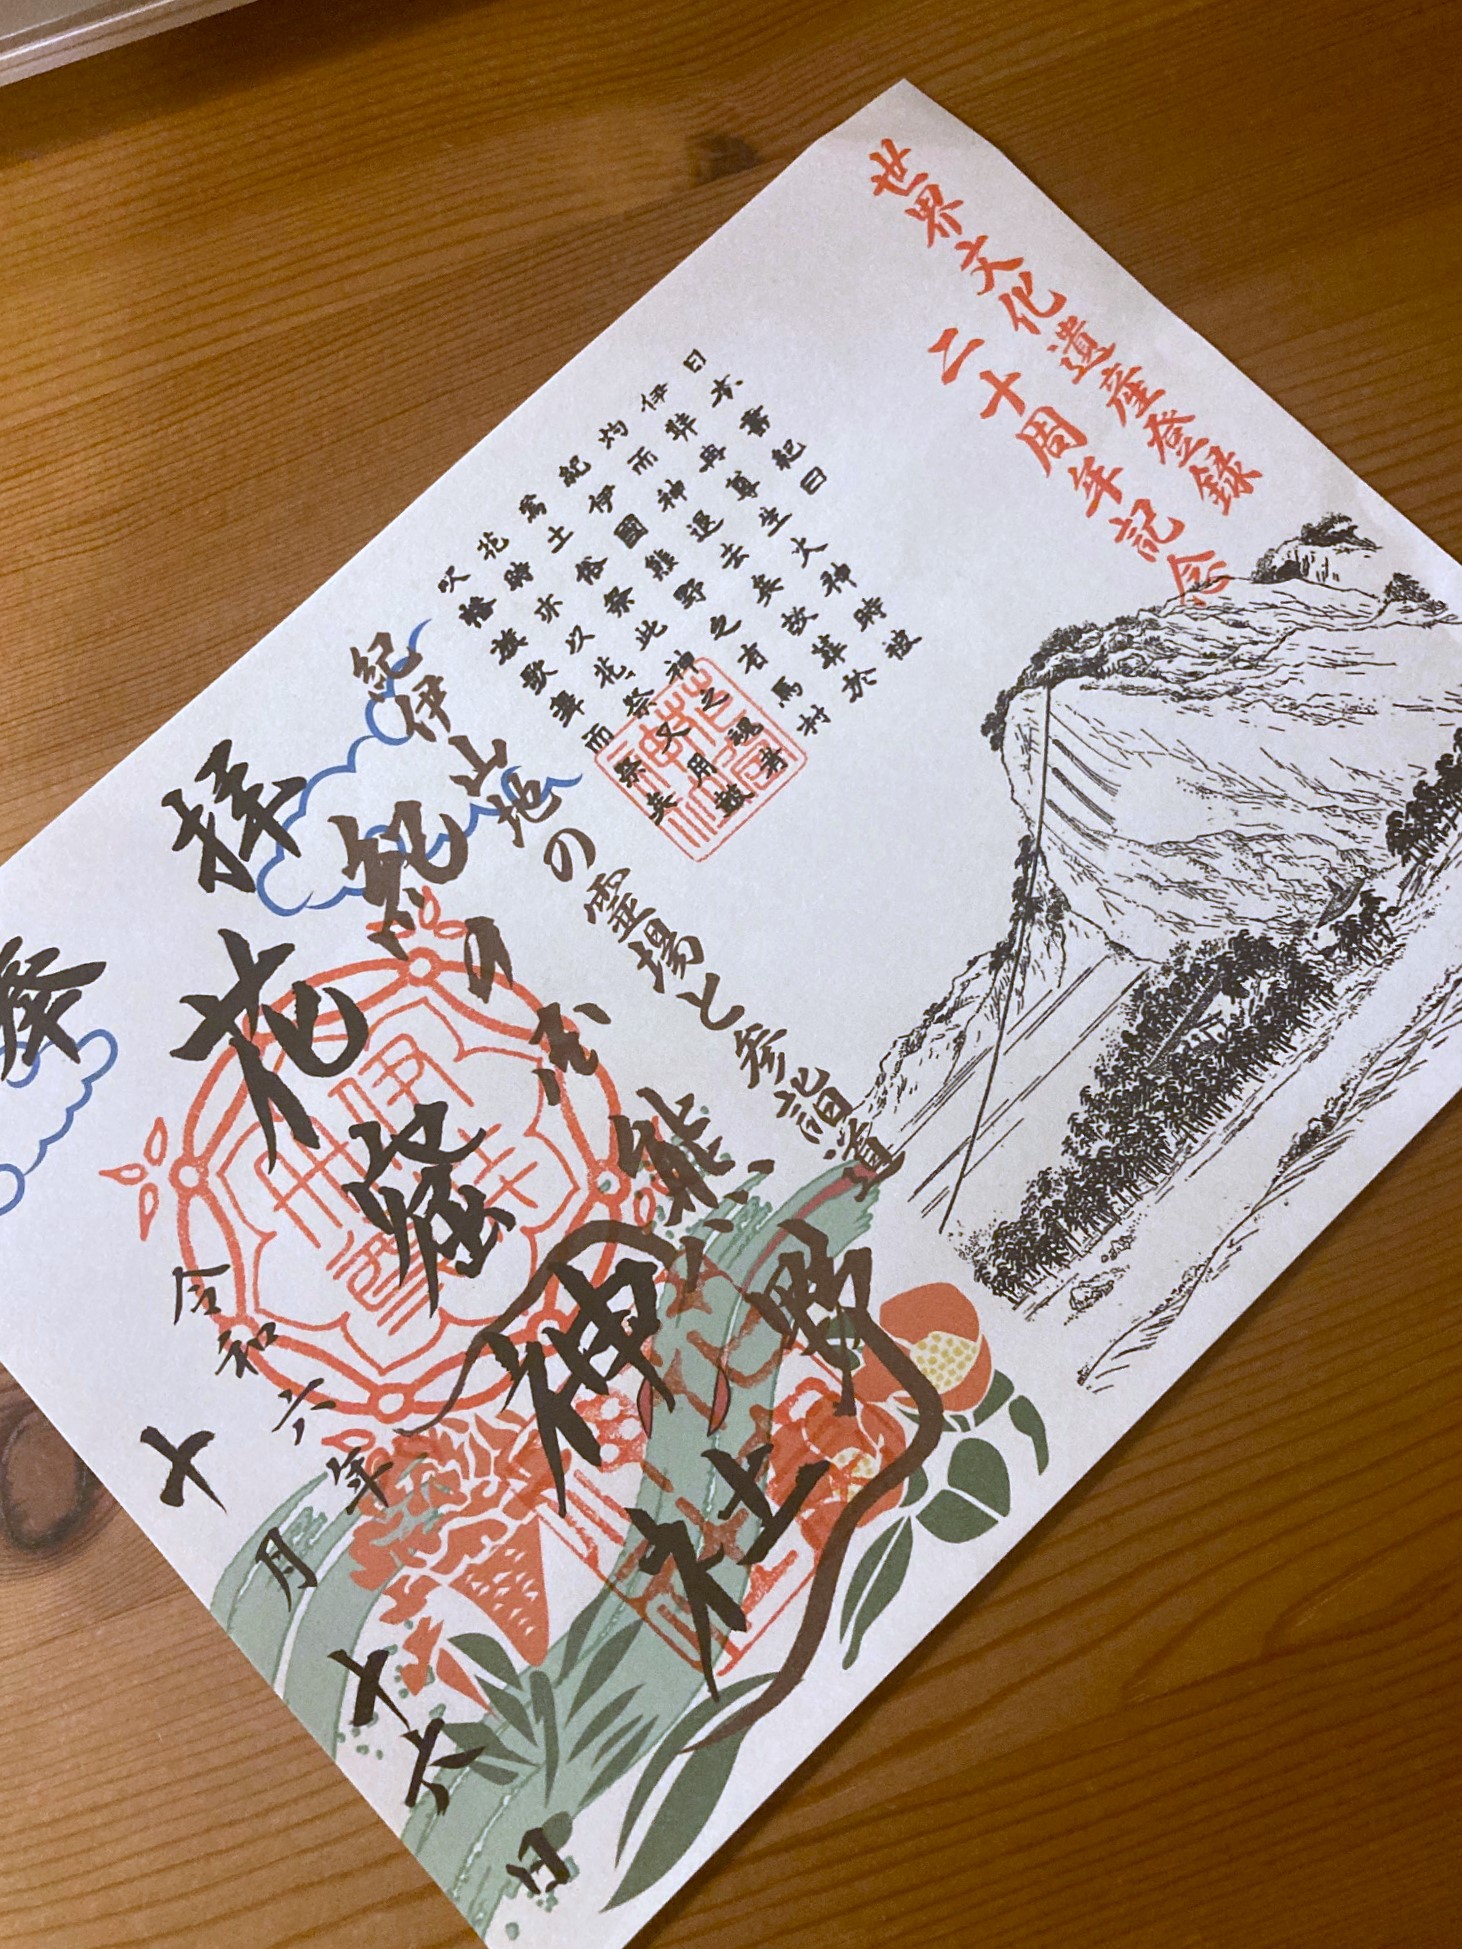 世界文化遺産登録
二十周年記念
日本書紀曰
伊弉冉尊生火神時被
灼而神退去矣故葬於
紀伊國熊野之有馬村
焉土俗祭此神之魂者
花時亦以花祭又用鼓
吹幡旗歌舞而祭矣
花窟神社
紀伊山地の霊場と参詣道
紀の 熊野
花窟神社
奉拝
令和六年
十月十六日